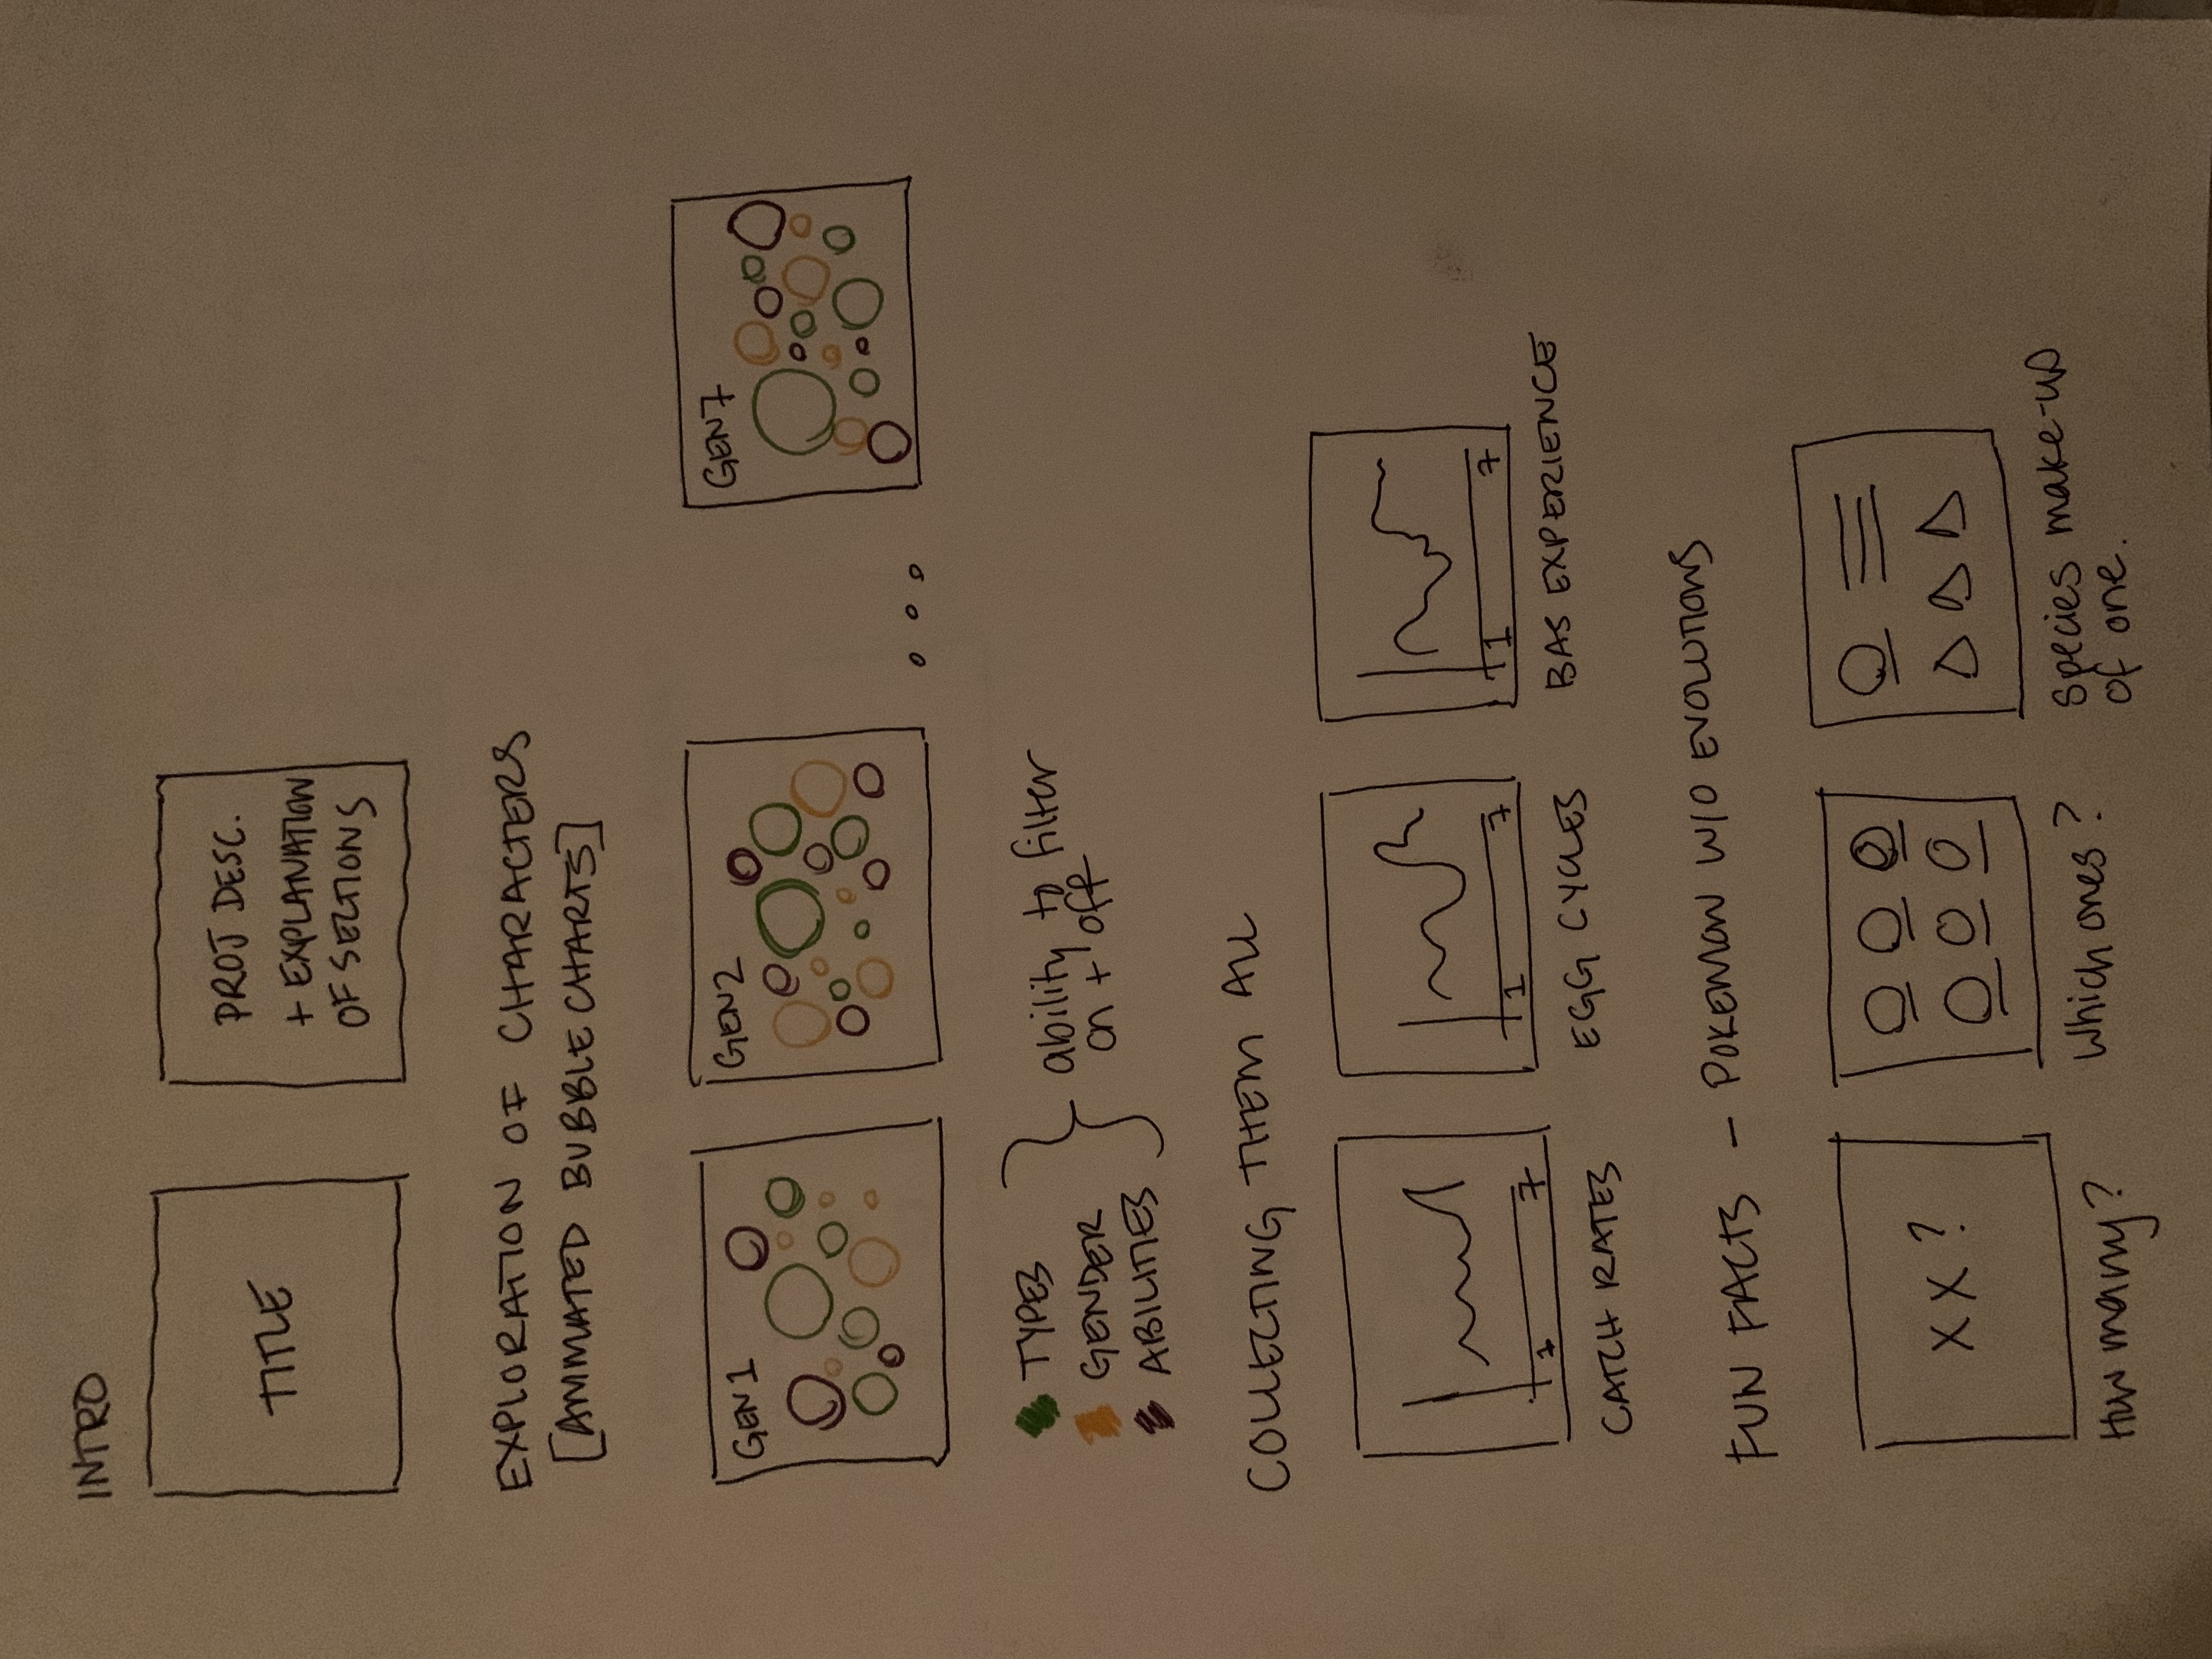 INTRO
TITLE
PROJ DESC.
+ EXPLANATION
OF SECTIONS
EXPLORATION OF CHARACTERS
[ANIMATED BUBBLE CHARTS]
GEN 1
GEN 2
GEN 7
TYPES
GENDER
ABILITIES
ability to filter
on + off
COLLECTING THEM ALL
1 7
CATCH RATES
1 7
EGG CYCLES
1 7
BAS EXPERIENCE
FUN FACTS - POKEMON W/O EVOLUTIONS
XX?
How many?
Which ones?
Species make-up
of one.